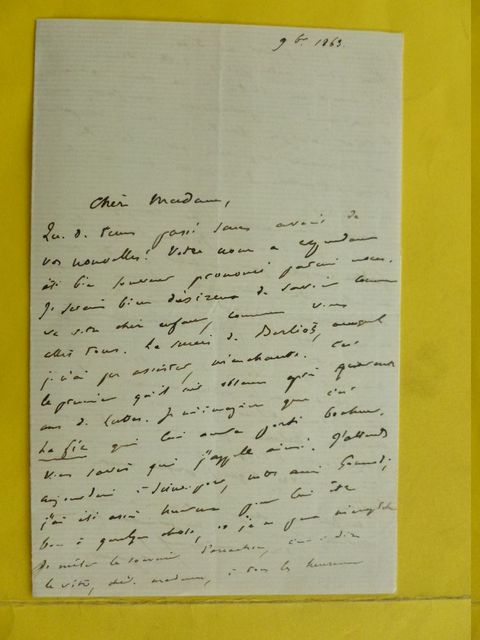 9bre 1863.
Chère Madame,
Que de temps passé sans avoir de
vos nouvelles! Votre nom a cependant
été bien souvent prononcé parmi nous.
Je serais bien désireux de savoir comment
va votre cher enfant, comment vous
allez tous. Le succès de Berlioz, auquel
j'ai pu assister, m'enchante. C'est
le premier qu'il ait obtenu après quarante
ans de luttes. Je m'imagine que c'est
La fée qui lui aura porté bonheur.
Vous savez qui j'appelle ainsi. J'attends
aujourd'hui à dîner, notre ami Gounod;
j'ai été assez heureux pour lui être
bon à quelque chose, et je
de mériter le souvenir d'
le vôtre, chère madame, à tous les heureux